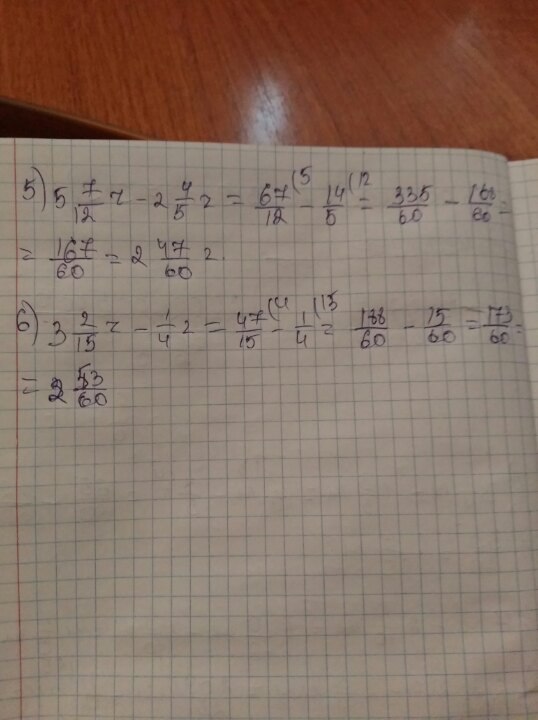 5) 5 7/12 г - 2 4/5 г = 67/12 (5 - 14/5 (12 = 335/60 - 168/60 =
= 167/60 = 2 47/60 г.
6) 3 2/15 г - 1/4 г = 47/15 (4 - 1/4 (15 = 188/60 - 15/60 = 173/60 =
= 2 53/60